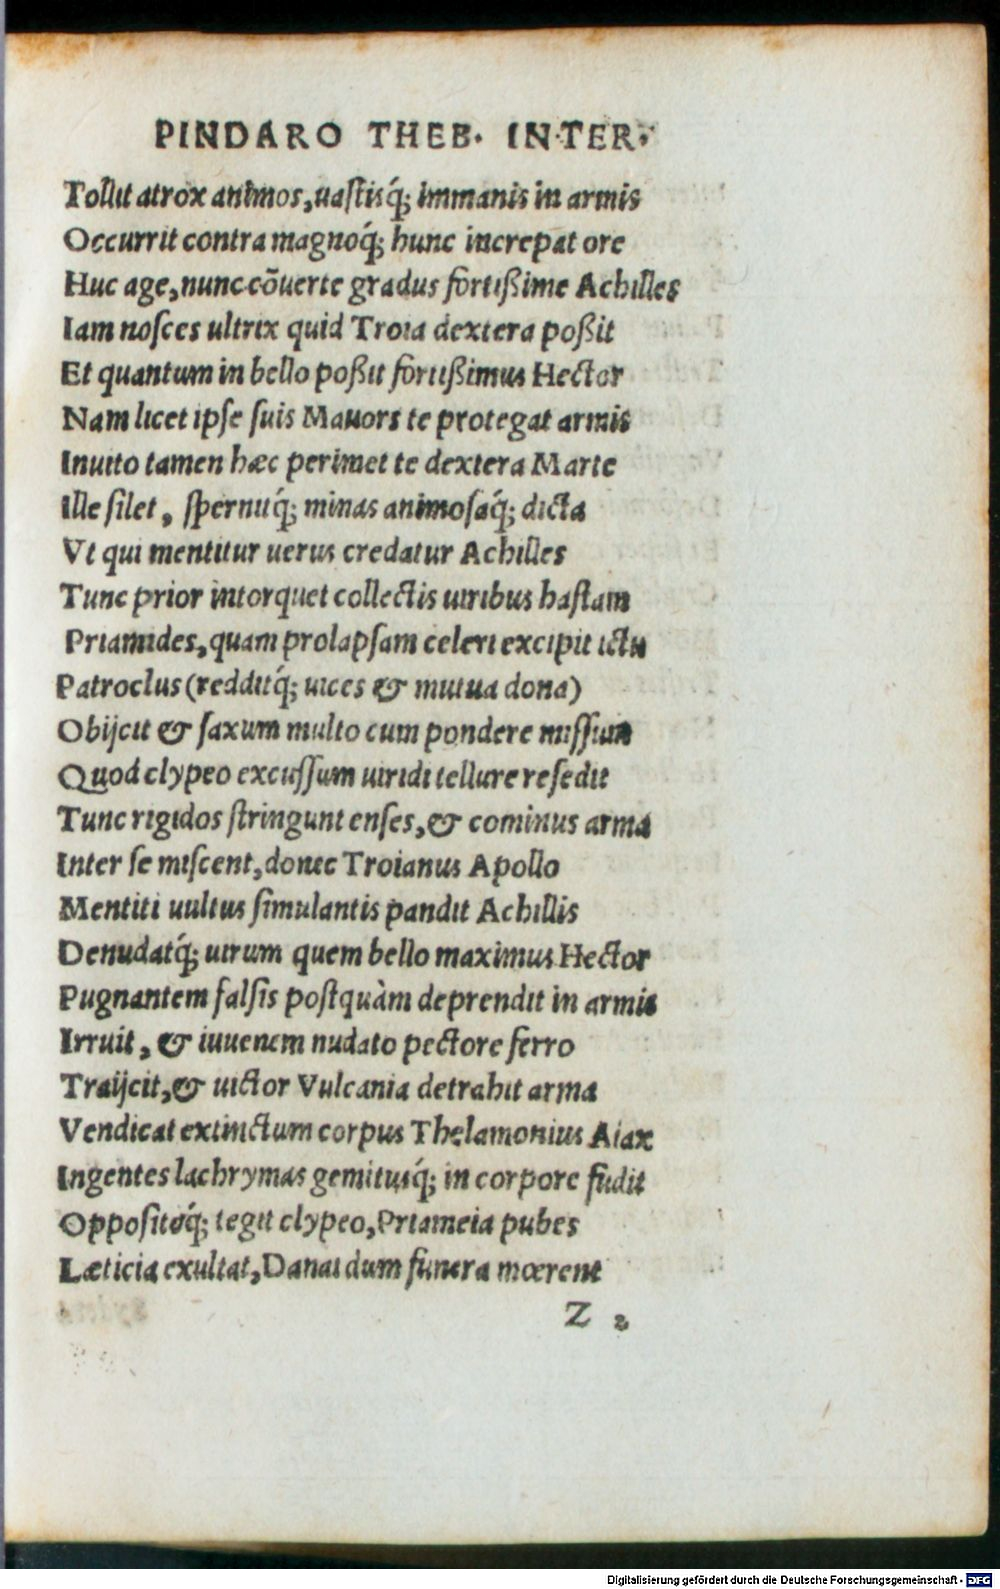 PINDARO THEB. INTER.
Tollit atrox animos, uastisq́; immanis in armis
Occurrit contra magnoq́; hunc increpat ore
Huc age, nunc cõuerte gradus fortißime Achilles
Iam nosces ultrix quid Troia dextera poßit
Et quantum in bello poßit fortißimus Hector
Nam licet ipse suis Mauors te protegat armis
Inuito tamen hæc perimet te dextera Marte
Ille silet, spernitq́; minas animosaq́; dicta
Vt qui mentitur uerus credatur Achilles
Tunc prior intorquet collectis uiribus hastam
Priamides, quam prolapsam celeri excipit ictu
Patroclus (redditq́; uices & mutua dona)
Obijcit & saxum multo cum pondere missum
Quod clypeo excussum uiridi tellure resedit
Tunc rigidos stringunt enses, & cominus arma
Inter se miscent, donec Troianus Apollo
Mentiti uultus simulantis pandit Achillis
Denudatq́; uirum quem bello maximus Hector
Pugnantem falsis postquàm deprendit in armis
Irruit, & iuuenem nudato pectore ferro
Traijcit, & uictor Vulcania detrahit arma
Vendicat extinctum corpus Thelamonius Aiax
Ingentes lachrymas gemitusq́; in corpore fudit
Oppositoq́; tegit clypeo, Priameia pubes
Læticia exultat, Danai dum funera mœrent
Z 2
Digitalisierung gefördert durch die Deutsche Forschungsgemeinschaft - DFG